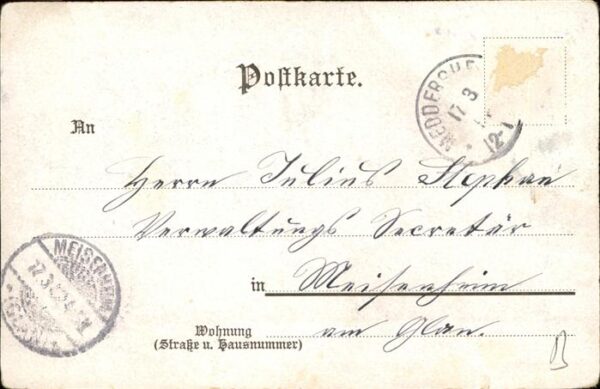 Postkarte.
MEDDERSHE
17 3
12-1
An
Herrn Julius Stephan
Verwaltungs Secretär
in Meisenheim
MEISENHEIM
17.3
Wohnung
(Straße u. Hausnummer)
am Glan.